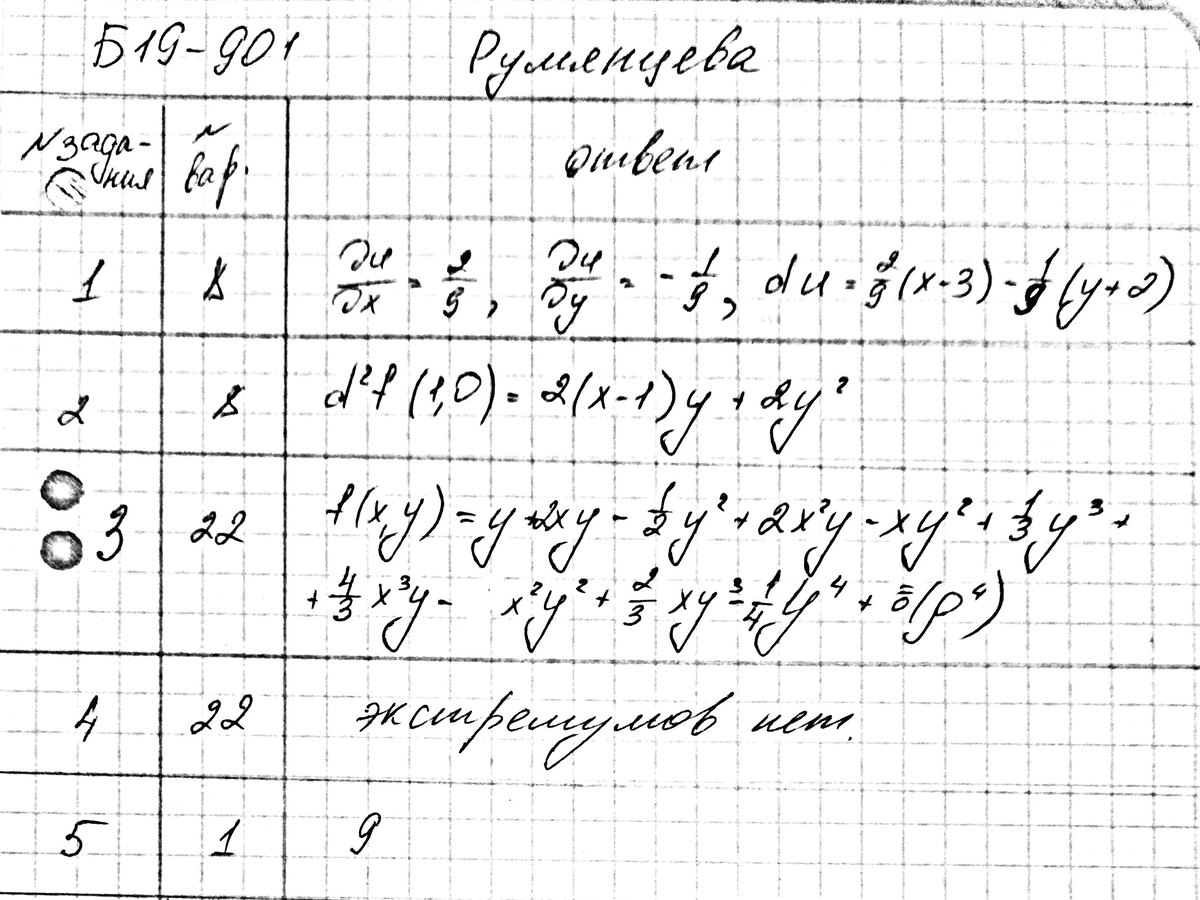 Б19-901 Румянцева
N зада- ния N вар. ответ
1 8 ∂u/∂x = 2/9, ∂u/∂y = -1/9, du = 2/9(x-3) - 1/9(y+2)
2 8 d²f(1,0) = 2(x-1)y + 2y²
3 22 f(x,y) = y + 2xy - 1/2 y² + 2x²y - xy² + 1/3 y³ +
+ 4/3 x³y - x²y² + 2/3 xy³ - 1/4 y⁴ + ō(ρ⁴)
4 22 экстремумов нет.
5 1 9